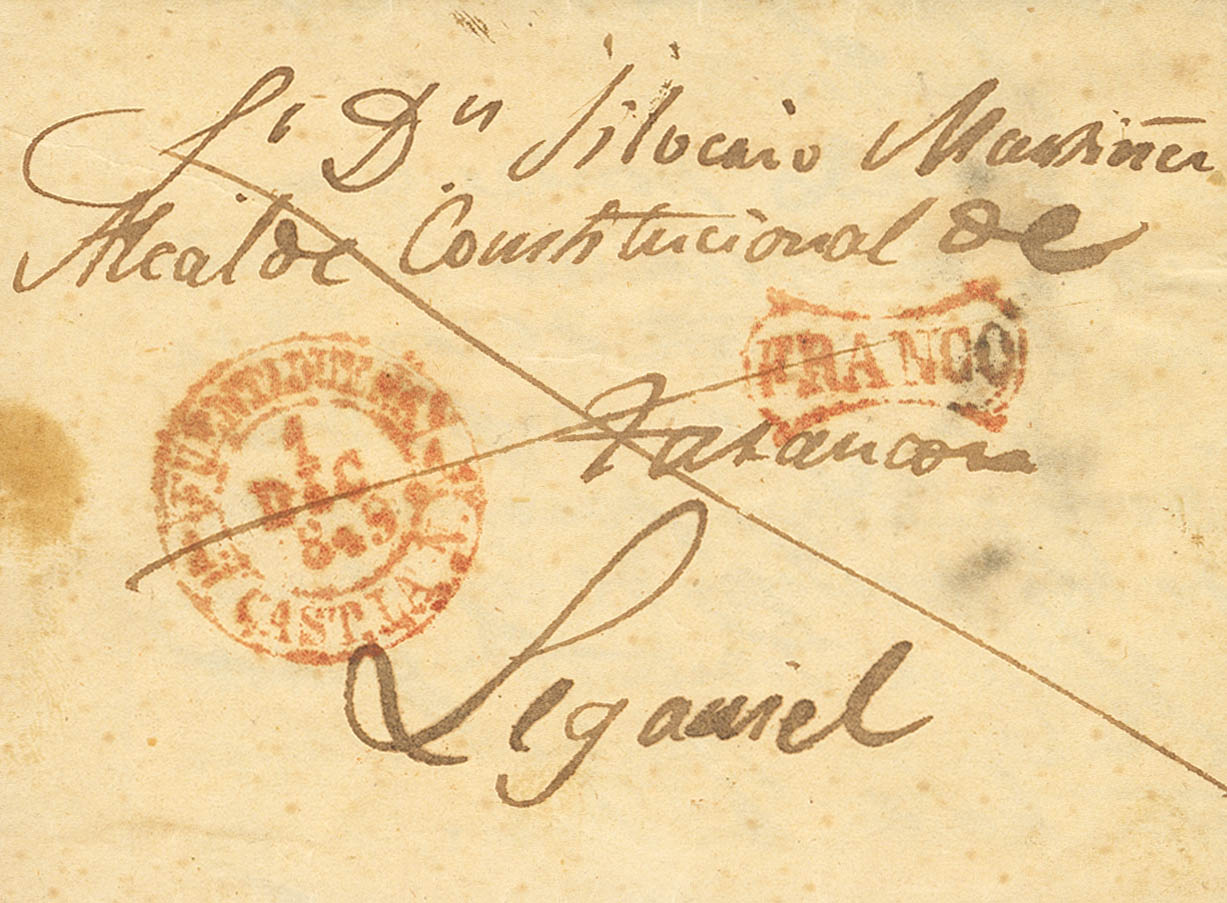 Sr. Dn Silverio Martinez
Alcalde Constitucional de
FRANCO
Tarancon
1
DIC
1849
CAST. LA N.
Leganiel